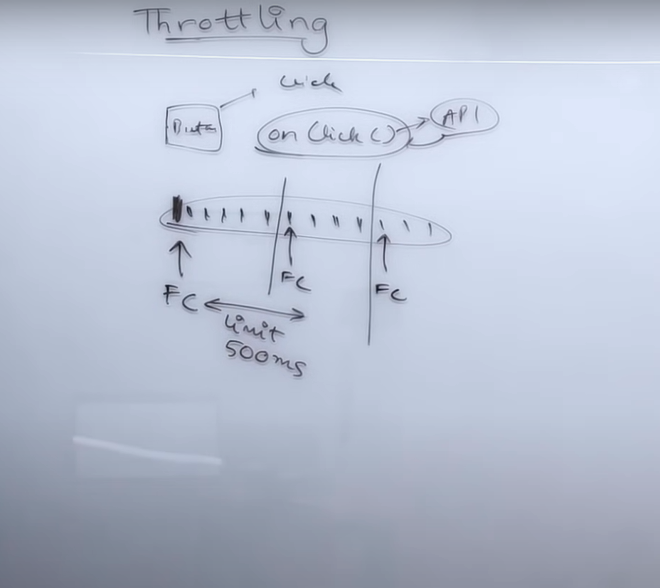 Throttling
Click
onClick() API
FC FC FC
limit
500ms